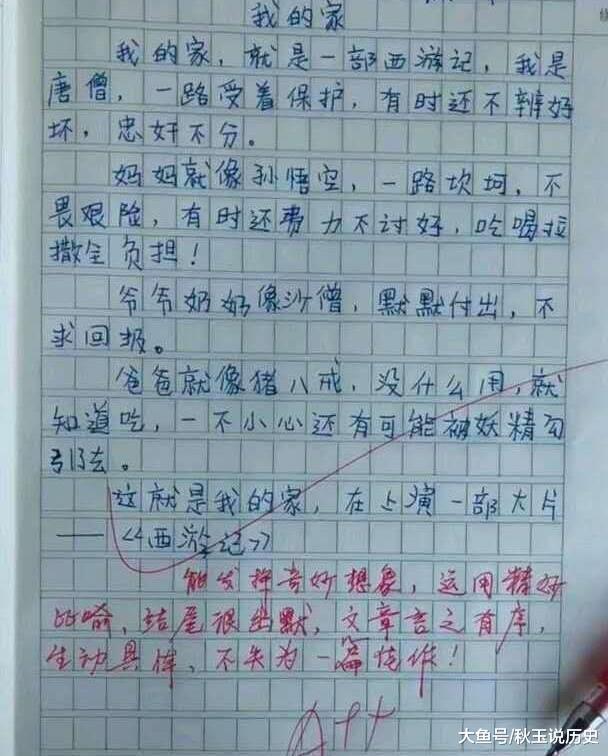 我的家
我的家，就是一部西游记，我是
唐僧，一路受着保护，有时还不辨好
坏，忠奸不分。
妈妈就像孙悟空，一路坎坷，不
畏艰险，有时还费力不讨好，吃喝拉
撒全负担！
爷爷奶奶像沙僧，默默付出，不
求回报。
爸爸就像猪八戒，没什么用，就
知道吃，一不小心还有可能被妖精勾
引去。
这就是我的家，在上演一部大片
——《西游记》
能发挥奇妙想象，运用精妙
比喻，结尾很幽默，文章言之有序，
生动具体，不失为一篇佳作！
A++
大鱼号/秋玉说历史